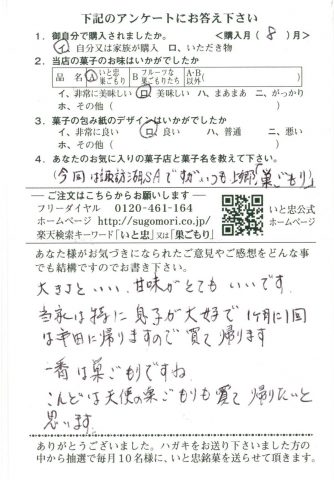 下記のアンケートにお答え下さい
1. 御自分で購入されましたか。 <購入月( 8 )月>
イ、自分又は家族が購入 ロ、いただき物
2. 当店の菓子のお味はいかがでしたか
品名 A いと忠巣ごもり B フルーツな巣ごもりたち A・B以外( )
イ、非常に美味しい ロ、美味しい ハ、まあまあ ニ、がっかり
ホ、その他( )
3. 菓子の包み紙のデザインはいかがでしたか
イ、非常に良い ロ、良い ハ、普通 ニ、悪い
ホ、その他( )
4. あなたのお気に入りの菓子店と菓子名を教えて下さい。
(今回は諏訪湖SAですがいつも上郷「巣ごもり」)
ご注文はこちらからお願いします
フリーダイヤル 0120-461-164
ホームページ http://sugomori.co.jp/
楽天検索キーワード「いと忠」又は「巣ごもり」
いと忠公式ホームページ
あなた様がお気づきになられたご意見やご感想をどんな事
でも結構ですのでお書き下さい。
大きさといい、甘味がとてもいいです。
は特に息子が大好で1ヶ月に1回
は帰りますので買て帰ります
一番は巣ごもりですね
こんどは天使の巣ごもりも買て帰りたいと
思います
ありがとうございました。ハガキをお送り下さいました方の
中から抽選で毎月10名様に、いと忠銘菓を送らせて頂きます。